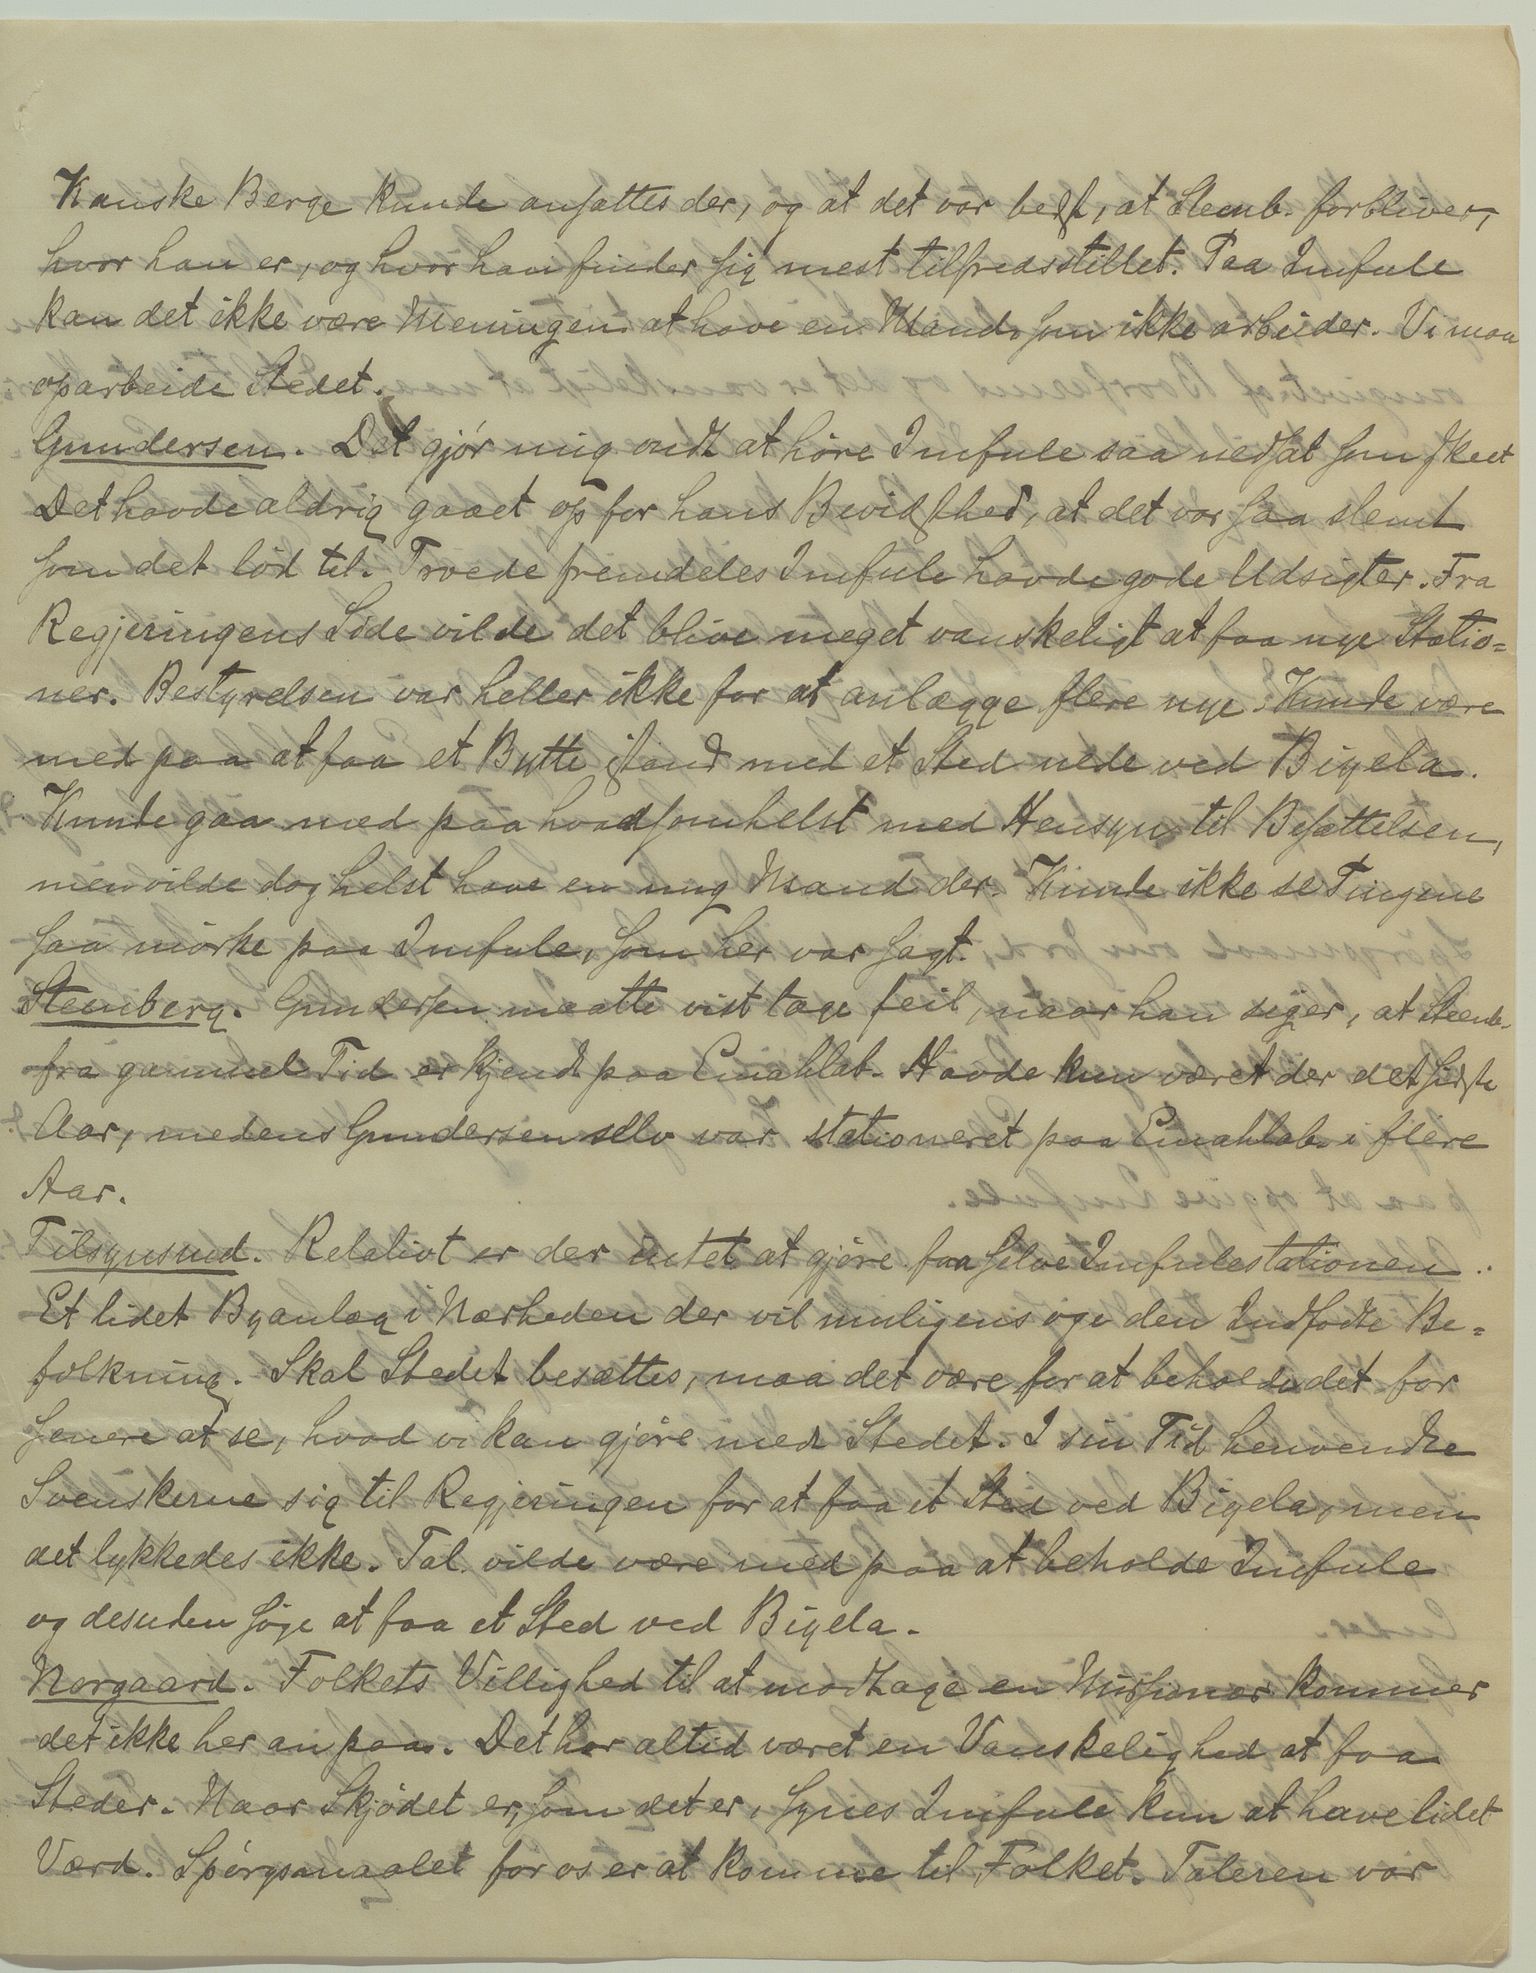 Kanske Berge kunde ansættes der, og at det var best, at Stenb. forbliver,
hvor han er, og hvor han finder sig mest tilfredsstillet. Paa Imfule
kan det ikke være Meningen at have en Mand som ikke arbeider. Vi maa
oparbeide Stedet.
Gundersen. Det gjør mig ondt at høre Imfule saa nedsat som skeet
Det havde aldrig gaaet op for hans Bevidsthed, at det var saa slemt
som det lød til. Troede fremdeles Imfule havde gode Udsigter. Fra
Regjeringens Side vilde det blive meget vanskeligt at faa nye Statio=
ner. Bestyrelsen var heller ikke for at anlægge flere nye. Kunde være
med paa at faa et Bytte istand med et Sted nede ved Biyela.
Kunde gaa med paa hvadsomhelst med Hensyn til Besættelsen,
men vilde dog helst have en ung Mand der. Kunde ikke se Tingene
saa mørke paa Imfule, som her var sagt.
Stenberg. Gundersen maatte vist tage feil, naar han siger, at Stenb.
fra gammel Tid er kjendt paa Emahlab. Havde kun været der det sidste
Aar, medens Gundersen selv var stationeret paa Emahlab. i flere
Aar.
Tilsynsmd. Relativt er der intet at gjøre paa selve Imfulestationen.
Et lidet Byanlæg i Nærheden der vil muligens øge den Indfødte Be=
folkning. Skal Stedet besættes, maa det være for at beholde det for
senere at se, hvad vi kan gjøre med Stedet. I sin Tid henvendte
Svenskerne sig til Regjeringen for at faa et Sted ved Biyela, men
det lykkedes ikke. Tal. vilde være med paa at beholde Imfule
og desuden søge at faa et Sted ved Biyela.
Norgaard. Folkets Villighed til at modtage en Missionær kommer
det ikke her an paa. Det har altid været en Vanskelighed at faa
Steder. Naar Skjødet er, som det er, synes Imfule kun at have lidet
Værd. Spørgsmaalet for os er at komme til Folket. Taleren var